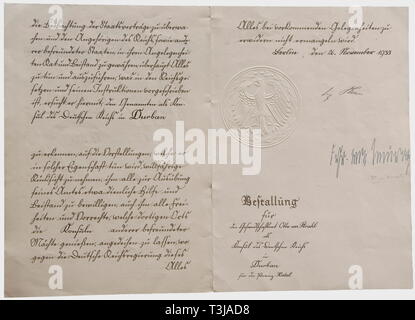 die Beobachtung der Staatsverträge zu überwa-
chen und den Angehörigen des Reichs, sowie ande-
rer befreundeter Staaten, in ihren Angelegenhei-
ten Rat und Beistand zu gewähren, überhaupt Alles
zu tun und auszuführen, was in den Reichsge-
setzen und seinen Instruktionen vorgeschrieben
ist, ersucht er hiermit, den Genannten als Kon-
sul des Deutschen Reichs in Durban
zu erkennen, auf die Vorstellungen, welche er
in solcher Eigenschaft tun wird, willfährige
Rücksicht zu nehmen, ihm alle zur Ausübung
seines Amtes etwa dienliche Hilfe und
Beistand zu bewilligen, auch ihn alle Frei-
heiten und Vorrechte, welche dortigen Orts
die Konsuln anderer befreundeter
Mächte genießen, angedeihen zu lassen, wo-
gegen die Deutsche Reichsregierung dieses
Alles
Alles bei vorkommenden Gelegenheiten zu
erwidern nicht ermangeln wird.
Berlin, den 14. November 1933
Bestallung
für
den Gesandtschaftsrat Otto von
als
Konsul des Deutschen Reichs
in
Durban
für die Provinz Natal
alamy